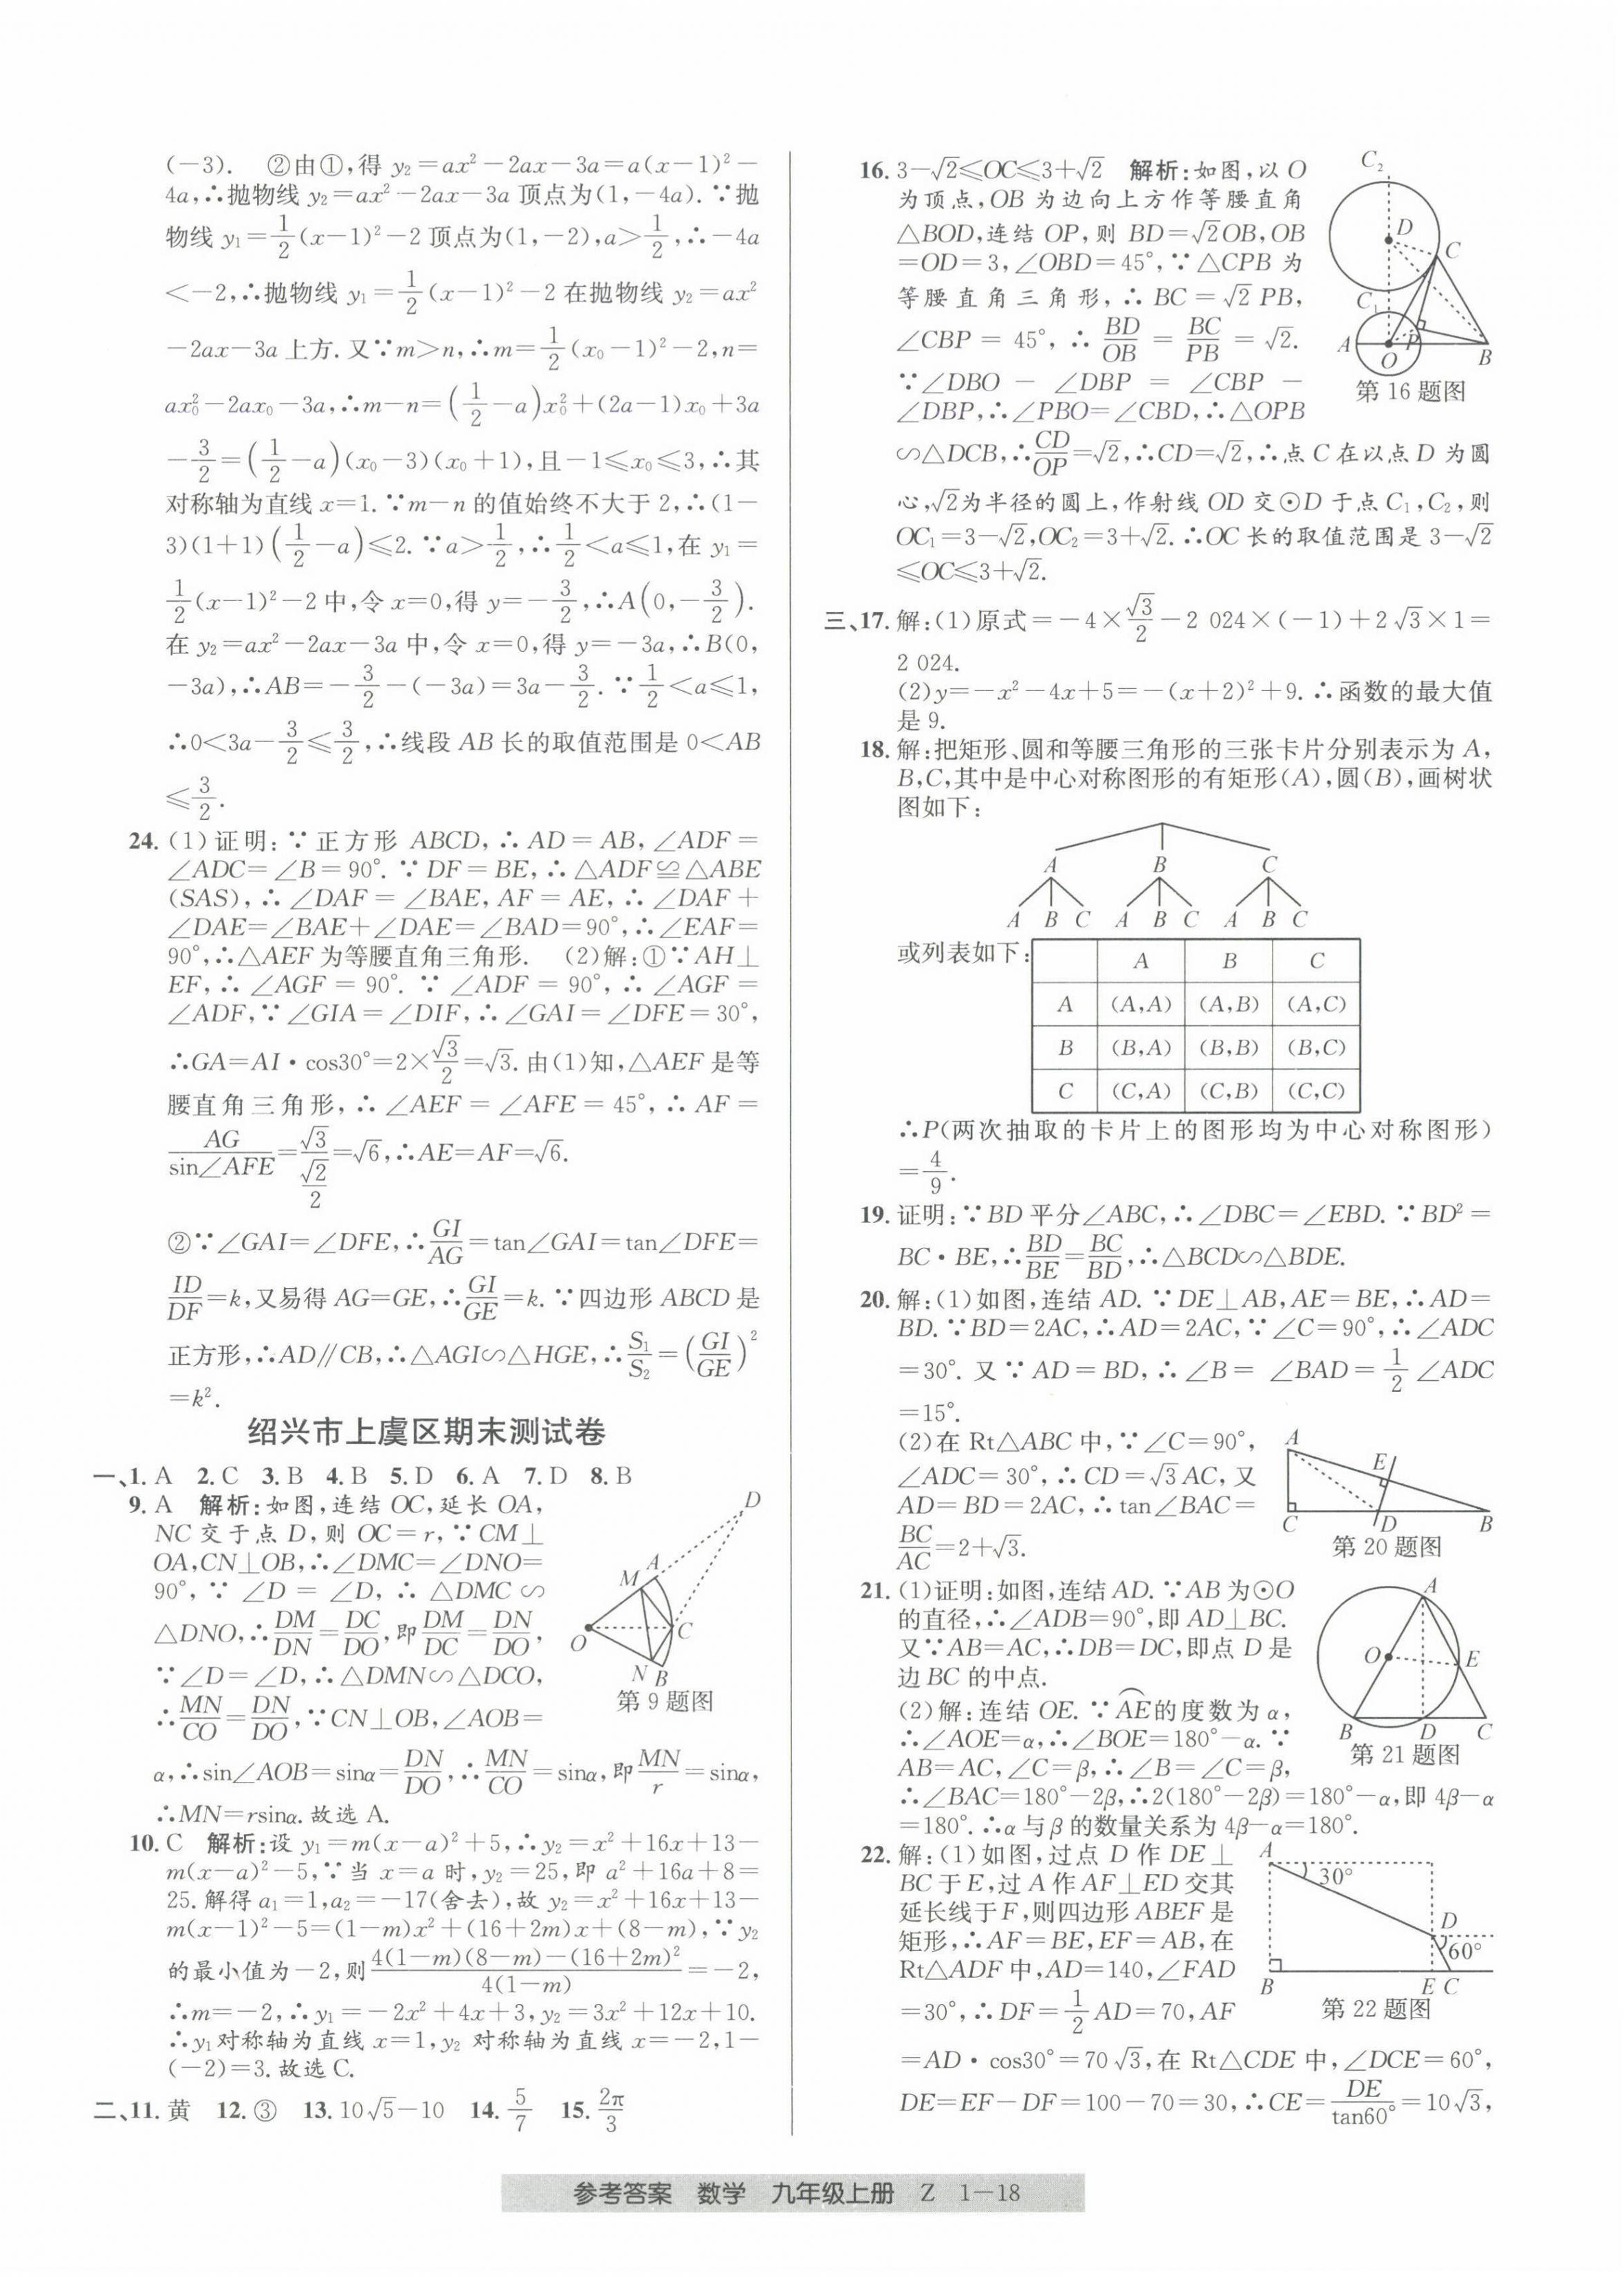 (－3).　②由①,得 y₂＝ax²－2ax－3a＝a(x－1)²－
4a,∴抛物线 y₂＝ax²－2ax－3a 顶点为(1,－4a).∵抛
物线 y₁＝1/2(x－1)²－2 顶点为(1,－2),a＞1/2,∴－4a
＜－2,∴抛物线 y₁＝1/2(x－1)²－2 在抛物线 y₂＝ax²
－2ax－3a 上方.又∵m＞n,∴m＝1/2(x₀－1)²－2,n＝
ax₀²－2ax₀－3a,∴m－n＝(1/2－a)x₀²＋(2a－1)x₀＋3a
－3/2＝(1/2－a)(x₀－3)(x₀＋1),且－1≤x₀≤3,∴其
对称轴为直线 x＝1.∵m－n 的值始终不大于 2,∴(1－
3)(1＋1)(1/2－a)≤2.∵a＞1/2,∴1/2＜a≤1,在 y₁＝
1/2(x－1)²－2 中,令 x＝0,得 y＝－3/2,∴A(0,－3/2).
在 y₂＝ax²－2ax－3a 中,令 x＝0,得 y＝－3a,∴B(0,
－3a),∴AB＝－3/2－(－3a)＝3a－3/2.∵1/2＜a≤1,
∴0＜3a－3/2≤3/2,∴线段 AB 长的取值范围是 0＜AB
≤3/2.
24.(1)证明:∵正方形 ABCD,∴AD＝AB,∠ADF＝
∠ADC＝∠B＝90°.∵DF＝BE,∴△ADF≌△ABE
(SAS),∴∠DAF＝∠BAE,AF＝AE,∴∠DAF＋
∠DAE＝∠BAE＋∠DAE＝∠BAD＝90°,∴∠EAF＝
90°,∴△AEF 为等腰直角三角形.　(2)解:①∵AH⊥
EF,∴∠AGF＝90°.∵∠ADF＝90°,∴∠AGF＝
∠ADF,∵∠GIA＝∠DIF,∴∠GAI＝∠DFE＝30°,
∴GA＝AI·cos30°＝2×√3/2＝√3.由(1)知,△AEF 是等
腰直角三角形,∴∠AEF＝∠AFE＝45°,∴AF＝
AG/sin∠AFE＝√3/(√2/2)＝√6,∴AE＝AF＝√6.
②∵∠GAI＝∠DFE,∴GI/AG＝tan∠GAI＝tan∠DFE＝
ID/DF＝k,又易得 AG＝GE,∴GI/GE＝k.∵四边形 ABCD 是
正方形,∴AD∥CB,∴△AGI∽△HGE,∴S₁/S₂＝(GI/GE)²
＝k².
绍兴市上虞区期末测试卷
一、1. A　2. C　3. B　4. B　5. D　6. A　7. D　8. B
9. A　解析:如图,连结 OC,延长 OA,
NC 交于点 D,则 OC＝r,∵CM⊥
OA,CN⊥OB,∴∠DMC＝∠DNO＝
90°,∵∠D＝∠D,∴△DMC∽
△DNO,∴DM/DN＝DC/DO,即DM/DC＝DN/DO,
∵∠D＝∠D,∴△DMN∽△DCO,
∴MN/CO＝DN/DO,∵CN⊥OB,∠AOB＝
D
A
M
O
C
N B
第 9 题图
α,∴sin∠AOB＝sinα＝DN/DO,∴MN/CO＝sinα,即MN/r＝sinα,
∴MN＝rsinα.故选 A.
10. C　解析:设 y₁＝m(x－a)²＋5,∴y₂＝x²＋16x＋13－
m(x－a)²－5,∵当 x＝a 时,y₂＝25,即 a²＋16a＋8＝
25.解得 a₁＝1,a₂＝－17(舍去),故 y₂＝x²＋16x＋13－
m(x－1)²－5＝(1－m)x²＋(16＋2m)x＋(8－m),∵y₂
的最小值为－2,则[4(1－m)(8－m)－(16＋2m)²]/[4(1－m)]＝－2,
∴m＝－2,∴y₁＝－2x²＋4x＋3,y₂＝3x²＋12x＋10.
∴y₁对称轴为直线 x＝1,y₂ 对称轴为直线 x＝－2,1－
(－2)＝3.故选 C.
二、11. 黄　12. ③　13. 10√5－10　14. 5/7　15. 2π/3
16. 3－√2≤OC≤3＋√2　解析:如图,以 O
为顶点,OB 为边向上方作等腰直角
△BOD,连结 OP,则 BD＝√2OB,OB
＝OD＝3,∠OBD＝45°,∵△CPB 为
等腰直角三角形,∴BC＝√2PB,
∠CBP＝45°,∴BD/OB＝BC/PB＝√2.
∵∠DBO－∠DBP＝∠CBP－
∠DBP,∴∠PBO＝∠CBD,∴△OPB
C₂
D
C
C₁
A
O
P
B
第 16 题图
∽△DCB,∴CD/OP＝√2,∴CD＝√2,∴点 C 在以点 D 为圆
心,√2为半径的圆上,作射线 OD 交⊙D 于点 C₁,C₂,则
OC₁＝3－√2,OC₂＝3＋√2.∴OC 长的取值范围是 3－√2
≤OC≤3＋√2.
三、17.解:(1)原式＝－4×√3/2－2 024×(－1)＋2√3×1＝
2 024.
(2)y＝－x²－4x＋5＝－(x＋2)²＋9.∴函数的最大值
是 9.
18.解:把矩形、圆和等腰三角形的三张卡片分别表示为 A,
B,C,其中是中心对称图形的有矩形(A),圆(B),画树状
图如下:
A　B　C
A B C　A B C　A B C
或列表如下:
A　B　C
A　(A,A)　(A,B)　(A,C)
B　(B,A)　(B,B)　(B,C)
C　(C,A)　(C,B)　(C,C)
∴P(两次抽取的卡片上的图形均为中心对称图形)
＝4/9.
19.证明:∵BD 平分∠ABC,∴∠DBC＝∠EBD.∵BD²＝
BC·BE,∴BD/BE＝BC/BD,∴△BCD∽△BDE.
20.解:(1)如图,连结 AD.∵DE⊥AB,AE＝BE,∴AD＝
BD.∵BD＝2AC,∴AD＝2AC,∵∠C＝90°,∴∠ADC
＝30°.又∵AD＝BD,∴∠B＝∠BAD＝1/2∠ADC
＝15°.
(2)在 Rt△ABC 中,∵∠C＝90°,
∠ADC＝30°,∴CD＝√3AC,又
AD＝BD＝2AC,∴tan∠BAC＝
BC/AC＝2＋√3.
A
E
C
D
B
第 20 题图
21.(1)证明:如图,连结 AD.∵AB 为⊙O
的直径,∴∠ADB＝90°,即 AD⊥BC.
又∵AB＝AC,∴DB＝DC,即点 D 是
边 BC 的中点.
(2)解:连结 OE.∵A͡E的度数为 α,
∴∠AOE＝α,∴∠BOE＝180°－α.∵
AB＝AC,∠C＝β,∴∠B＝∠C＝β,
A
O
E
B
D
C
第 21 题图
∴∠BAC＝180°－2β,∴2(180°－2β)＝180°－α,即 4β－α
＝180°.∴α 与 β 的数量关系为 4β－α＝180°.
22.解:(1)如图,过点 D 作 DE⊥
BC 于 E,过 A 作 AF⊥ED 交其
延长线于 F,则四边形 ABEF 是
矩形,∴AF＝BE,EF＝AB,在
Rt△ADF 中,AD＝140,∠FAD
＝30°,∴DF＝1/2AD＝70,AF
A
30°
D
60°
B
E C
第 22 题图
＝AD·cos30°＝70√3,在 Rt△CDE 中,∠DCE＝60°,
DE＝EF－DF＝100－70＝30,∴CE＝DE/tan60°＝10√3,
参考答案　数学　九年级上册　Z　1－18